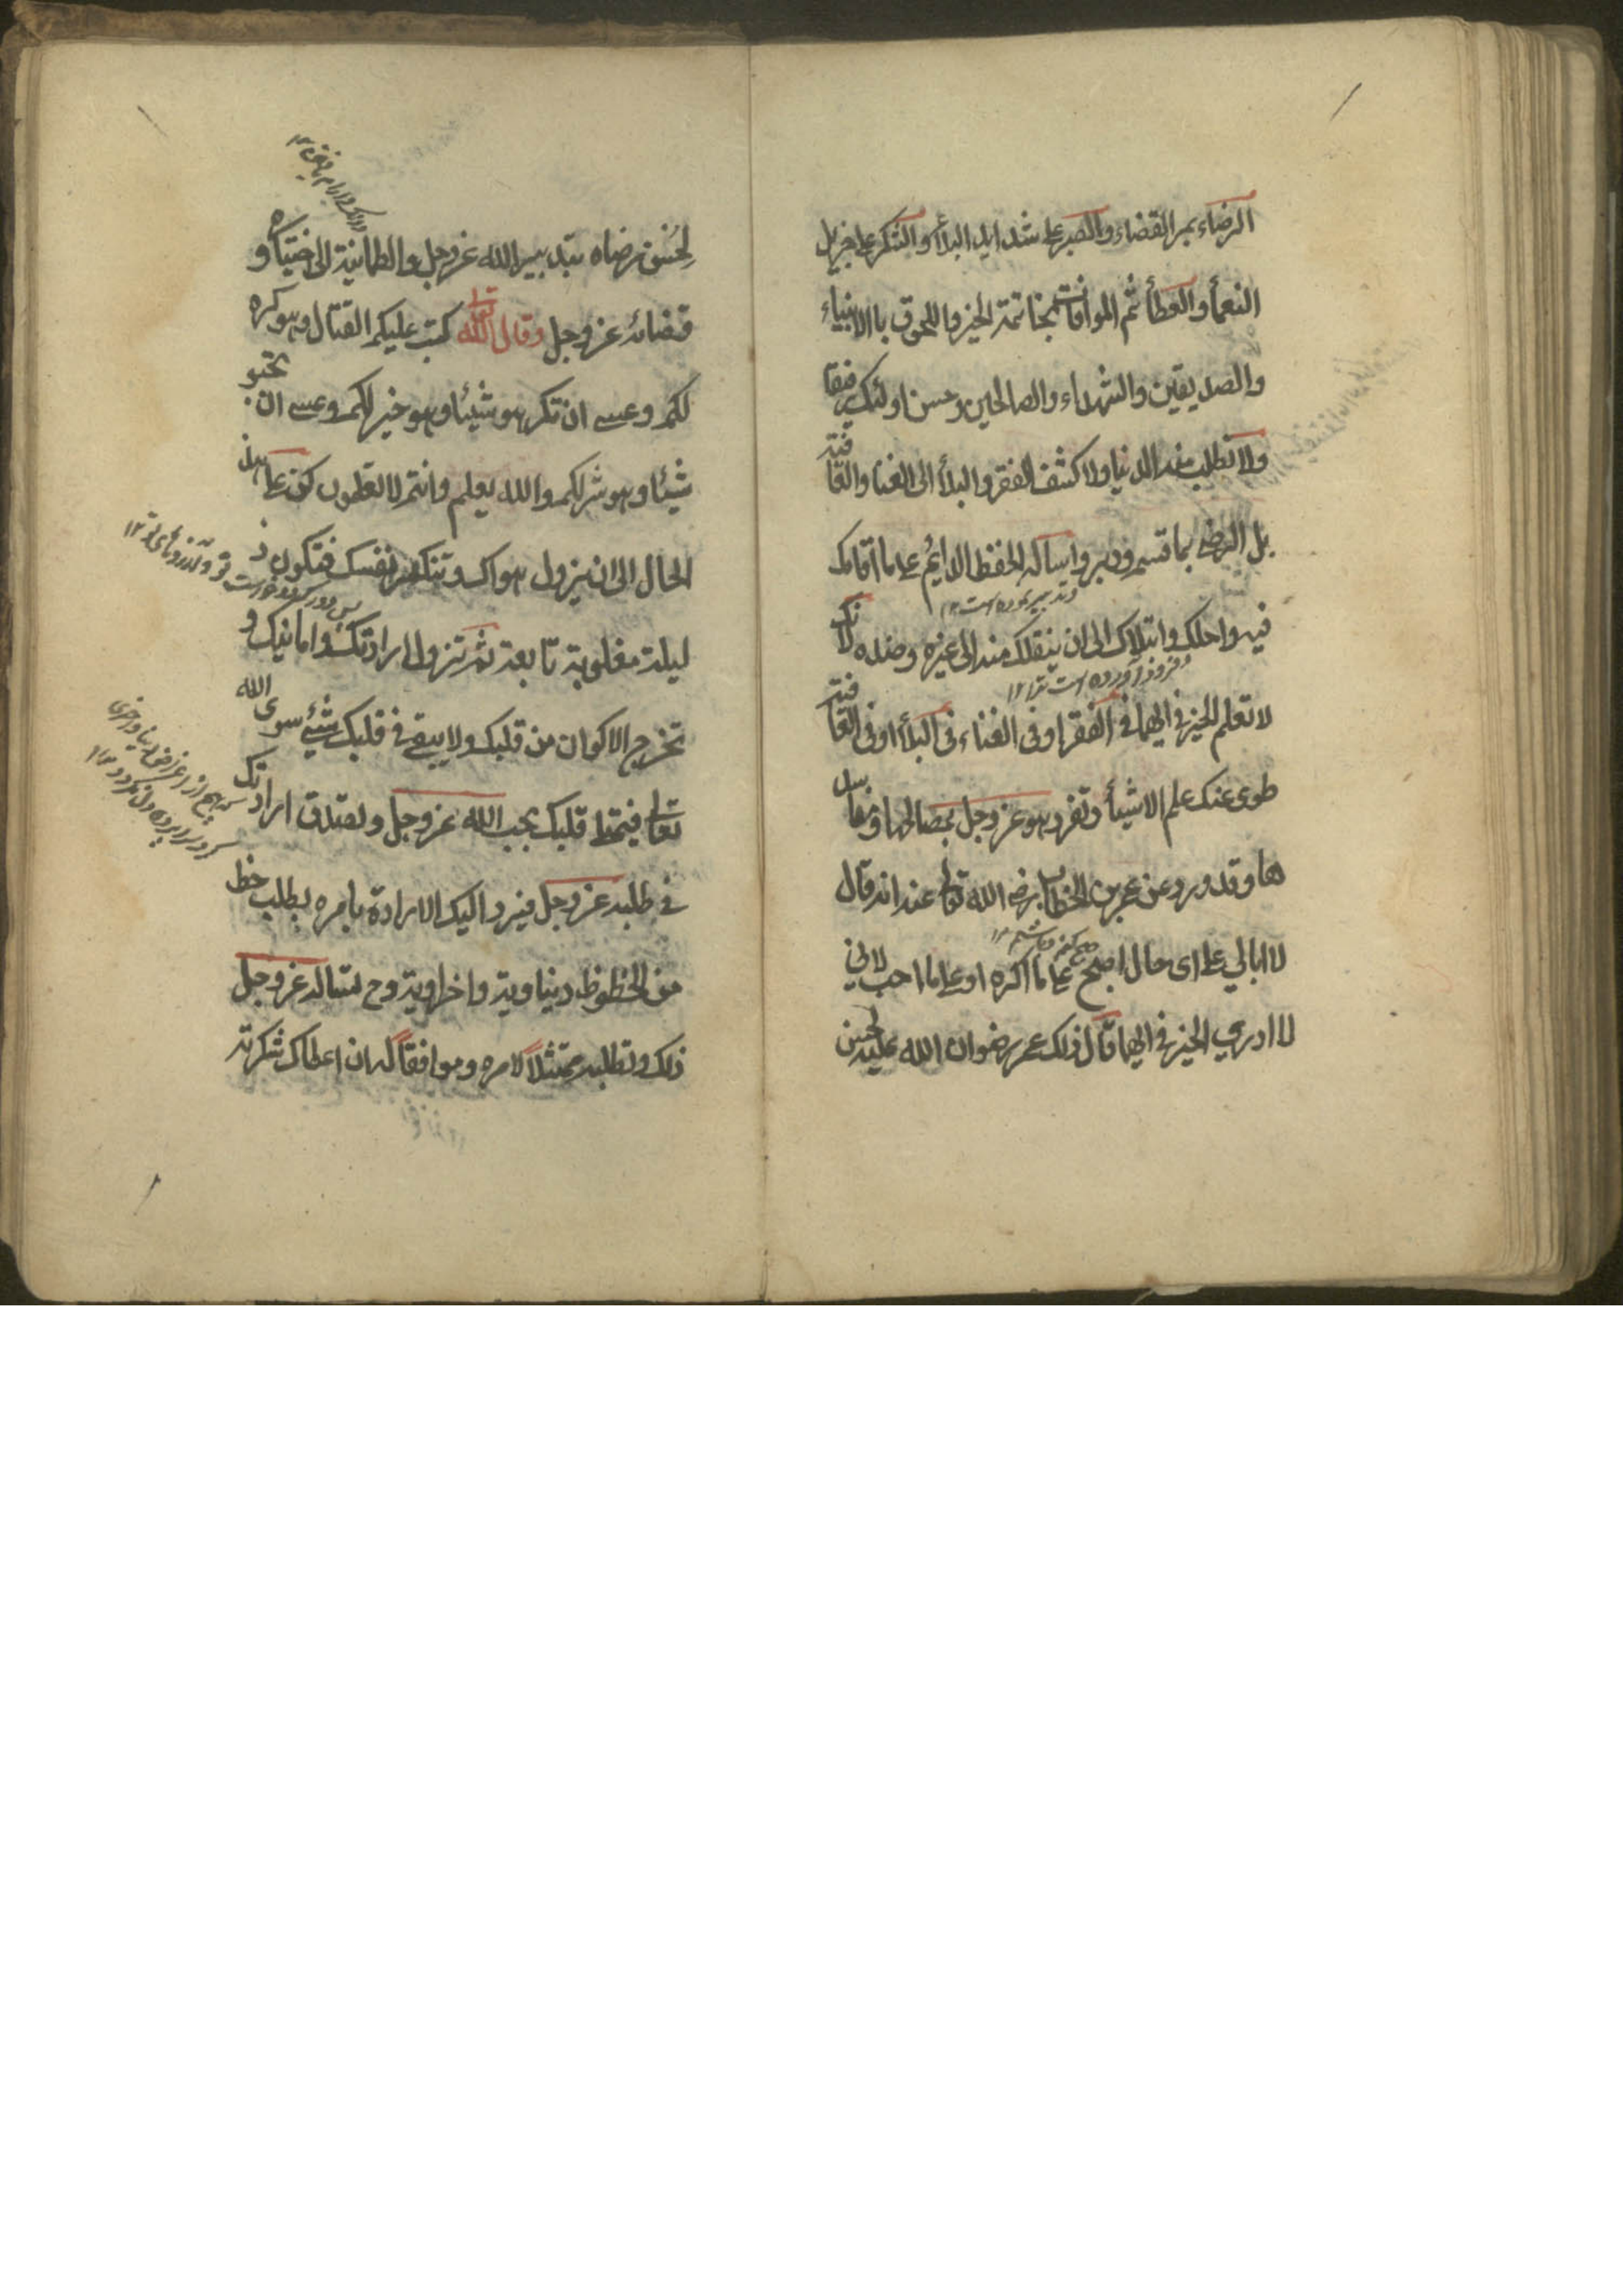 الرضاء بمر القضاء والصبر على شدايد البلأ والشكر على جزيل
النعمأ والعطأ ثم الموافات بخاتمة الخير واللحوق باالانبياء
والصديقين والشهداء والصالحين وحسن اولئك رفيقا
ولا تطلب منه الدنيا ولا كشف الفقر والبلأ الى الغنا والعافية
بل الرضى بما قسم ودبر واساله الحفظ الدايم على ما اقامك
وتدبير نموده است ١٢
فيه واحلك وابتلاك الى ان ينقلك منه الى غيره وضده لانك
فرود آورده است ترا ١٢
لا تعلم الخير فى ايهما فى الفقر او فى الغناء فى البلأ او فى العافية
طوى عنك علم الاشيأ وتفرد هو عز وجل بمصالحها ومفاسد
ها وقد ورد عن عمر بن الخطاب رضى الله تعالى عنه انه قال
لا ابالي على اى حال اصبح على ما اكره او على ما احب لانى
لا ادري الخير فى ايهما قال ذلك عمر رضوان الله عليه لحسن
لحسن رضاه بتدبير الله عز وجل والطمانينة الى اختياره و
قضائه عز وجل وقال الله تعالى كتب عليكم القتال وهو كره
لكم وعسى ان تكرهو شيئا وهو خير لكم وعسى ان تحبو
شيئا وهو شر لكم والله يعلم وانتم لا تعلمون كن على هذ
الحال الى ان يزول هواك وتنكسر نفسك فتكون ذ
ليلة مغلوبة تابعة ثم تزول ارادتك وامانيك و
تخرج الاكوان من قلبك ولا يبقى فى قلبك شيئ سوى الله
تعالى فيمتلى قلبك بحب الله عز وجل وتصدق ارادتك
فى طلبه عز وجل فيرد اليك الارادة بامره بطلب حظ
من الحظوظ دنياوية واخراوية وح تساله عز وجل
ذلك وتطلبه ممتثلاً لامره وموافقاً له ان اعطاك شكرته